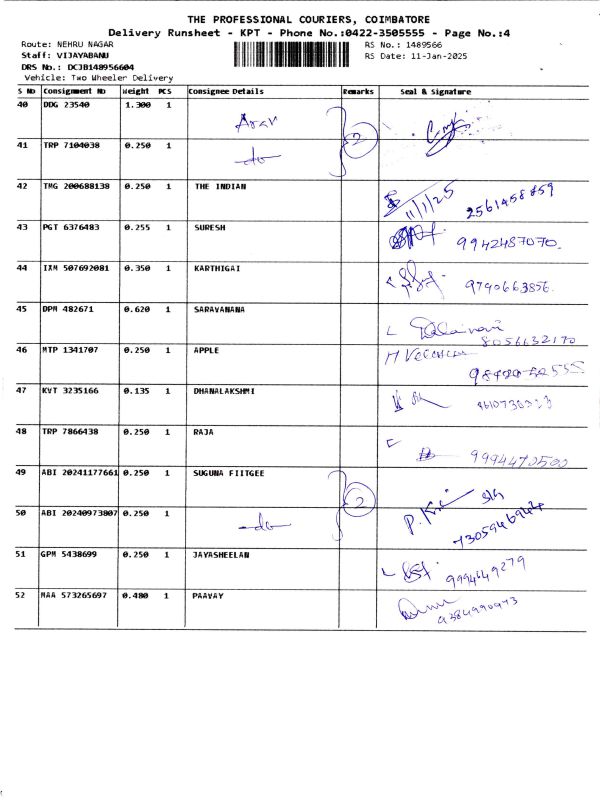 THE PROFESSIONAL COURIERS, COIMBATORE
Delivery Runsheet - KPT - Phone No.:0422-3505555 - Page No.:4
Route: NEHRU NAGAR RS No.: 1489566
Staff: VIJAYABANU RS Date: 11-Jan-2025
DRS No.: DCJB148956604
Vehicle: Two Wheeler Delivery
S No Consignment No Weight PCS Consignee Details Remarks Seal & Signature
40 DDG 23540 1.300 1 Arav 2
41 TRP 7104038 0.250 1 -do-
42 TMG 200688138 0.250 1 THE INDIAN 11/1/25 2561458859
43 PGT 6376483 0.255 1 SURESH 9942487070.
44 IXM 507692081 0.350 1 KARTHIGAI 9790663856.
45 DPM 482671 0.620 1 SARAVANANA 8056632170
46 MTP 1341707 0.250 1 APPLE
47 KVT 3235166 0.135 1 DHANALAKSHMI
48 TRP 7866438 0.250 1 RAJA 9994470500
49 ABI 20241177661 0.250 1 SUGUNA FIITGEE 2
50 ABI 20240973807 0.250 1 -do- 7305946944
51 GPM 5438699 0.250 1 JAYASHEELAN 9994649279
52 MAA 573265697 0.480 1 PAAVAY 9384990973